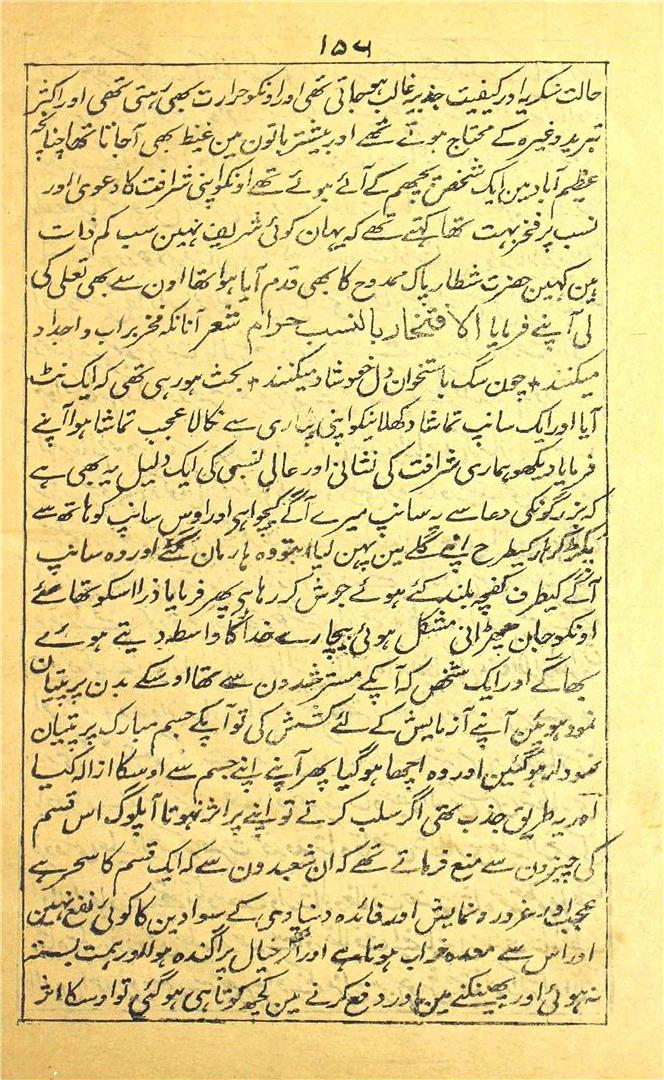 ۱۵۶
حالت سکریہ اور کیفیت جذبیہ غالب ہوجاتی تھی اور اونکو حرارت بھی رہتی تھی اور اکثر
تبرید وغیرہ کے محتاج ہوتے تھے اور بیشتر باتون مین غیظ بھی آجاتا تھا چنانچہ
عظیم آباد مین ایک شخص پچھم کے آئے ہوئے تھے اونکو اپنی شرافت کا دعوی اور
نسب پر فخر بہت تھا کہتے تھے کہ یہان کوئی شریف نہین سب کم ذات
ہین کہین حضرت شطار پاک ممدوح کا بھی قدم آیا ہوا تھا اون سے بھی تعلی کی
لی آپنے فرمایا الافتخار بالنسب حرام شعر آنانکہ فخر بر اب واجداد
میکنند + چون سگ باستخوان دل خود شاد میکنند + بحث ہو رہی تھی کہ ایک نٹ
آیا اور ایک سانپ تماشا دکھلانیکو اپنی پٹاری سے نکالا عجب تماشا ہوا آپنے
فرمایا دیکھو ہماری شرافت کی نشانی اور عالی نسبی کی ایک دلیل یہ بھی ہے
کہ بزرگونکی دعا سے یہ سانپ میرے آگے کیچوا ہی اور اوس سانپ کو ہاتھ سے
پکڑ کر ہار کیطرح اپنے گلے مین پہن لیا تو وہ ہار مان گئے اور وہ سانپ
آگے کیطرف کفچہ بلند کئے ہوئے جوش کر رہا ہی پھر فرمایا ذرا اسکو تھامئے
اونکو جان چھڑانی مشکل ہوئی بیچارے خدا کا واسطہ دیتے ہوئے
بھاگے اور ایک شخص کہ آپکے مسترشدون سے تھا اوسکے بدن پر پتیان
نمود ہوئین آپنے آزمایش کے لئے کشش کی تو آپکے جسم مبارک پر پتیان
نمودار ہوگئین اور وہ اچھا ہوگیا پھر آپنے اپنے جسم سے اوسکا ازالہ کیا
اور یہ طریق جذب تھی اگر سلب کرتے تو اپنے پر اثر نہوتا آپلوگ اس قسم
کی چیزون سے منع فرماتے تھے کہ ان شعبدون سے کہ ایک قسم کا سحر ہے
عجب اور غرور ونمایش اور فائدہ دنیاوی کے سوا دین کا کوئی نفع نہین
اور اس سے معدہ خراب ہوتا ہے اور اگر خیال پراگندہ ہوا اور ہمت بستہ
نہ ہوئی اور پھینکنے مین اور دفع کرنے مین کچھ کوتاہی ہوگئی تو اوسکا اثر